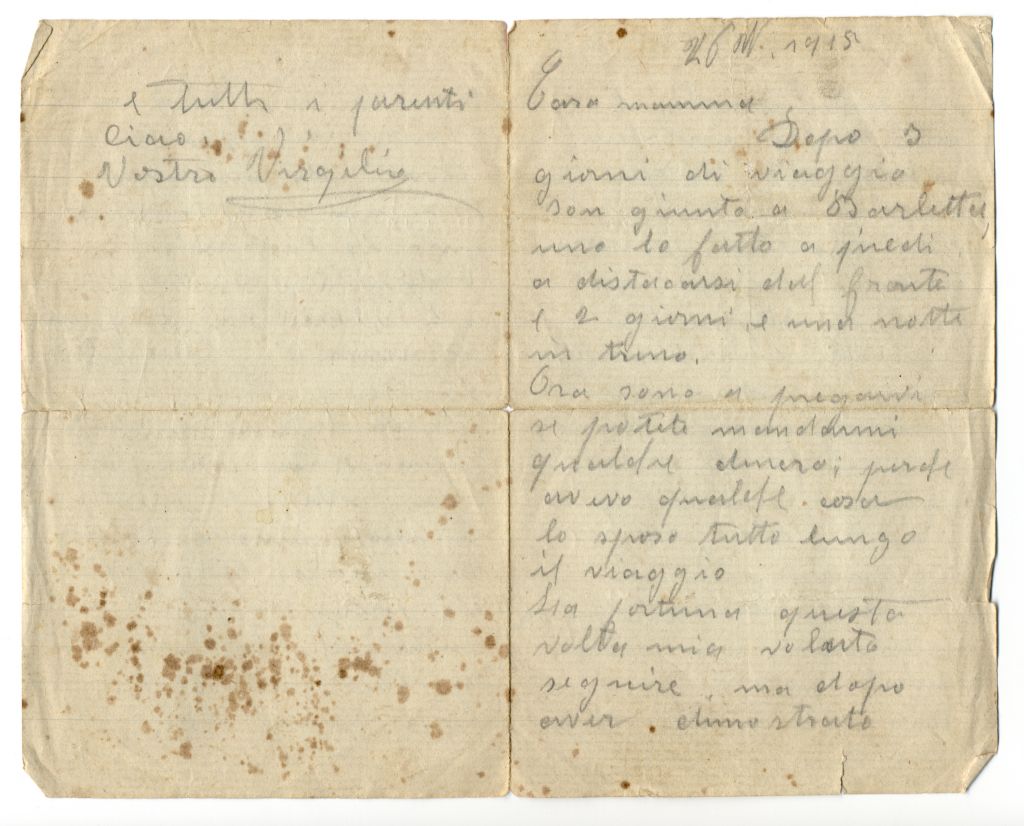 1915
Cara mamma
Dopo 3
giorni di viaggio
son giunto a Barletta,
uno lo fatto a piedi
a distacarsi dal fronte
e 2 giorni e una notte
in treno.
Ora sono a pregarvi
se potete mandarmi
qualche denero; perche
avevo qualche cosa
lo speso tutto lungo
il viaggio
La fortuna questa
volta mia voluto
seguire, ma dopo
aver dimostrato
e tutti i parenti
Ciao,
Vostro Virgilio